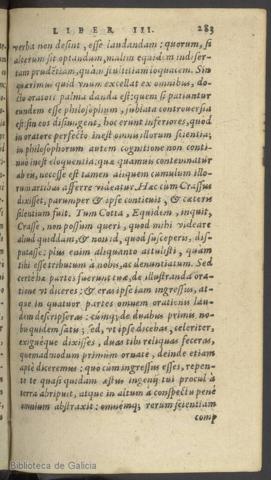 LIBER III. 283
verba non desint, esse laudandam: quorum, si
alterum sit optandum, malim equidem indiser-
tam prudẽtiam, quàm stultitiam loquacem. Sin
quærimus quid vnum excellat ex omnibus, do-
cto oratori palma danda est: quem si patiuntur
eundem esse philosophum, sublata controuersia
est: sin eos disiungent, hoc erunt inferiores, quod
in oratore perfecto inest omnis illorum scientia,
in philosophorum autem cognitione non conti-
nuò inest eloquentia: quæ quamuis contemnatur
ab eis, necesse est tamen aliquem cumulum illo-
rum artibus afferre videatur. Hæc cùm Crassus
dixisset, parumper & ipse conticuit, & cæteris
silentium fuit. Tum Cotta, Equidem, inquit,
Crasse, non possum queri, quod mihi videare
aliud quiddam, & non id, quod susceperis, dis-
putasse: plus enim aliquanto attulisti, quàm
tibi esset tributum à nobis, ac denuntiatum. Sed
certè hæ partes fuerunt tuæ, de illustranda ora-
tione vt diceres: & eras ipse iam ingressus, at-
que in quatuor partes omnem orationis lau-
dem descripseras: cúmq; de duabus primis no-
bis quidem satis; sed, vt ipse dicebas, celeriter,
exiguéque dixisses, duas tibi reliquas feceras,
quemadmodum primùm ornatè, deinde etiam
aptè diceremus: quo cùm ingressus esses, repen-
te te quasi quidam æstus ingenij tui procul à
terra abripuit, atque in altum à conspectu penè
omnium abstraxit: omnemq; rerum scientiam
comp
Biblioteca de Galicia